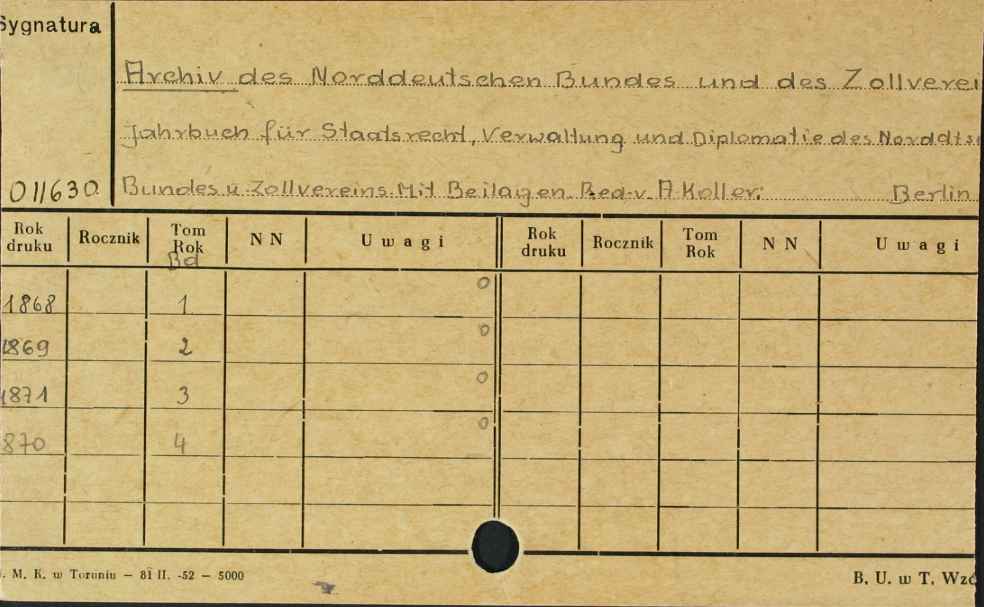 Sygnatura
Archiv des Norddeutschen Bundes und des Zollverei
Jahrbuch für Staatsrecht, Verwaltung und Diplomatie des Norddts
011630 Bundes u. Zollvereins. Mit Beilagen. Red. v. A Koller. Berlin
Rok druku Rocznik Tom Rok Bd NN Uwagi Rok druku Rocznik Tom Rok NN Uwagi
1868 1 0
1869 2 0
1871 3 0
870 4 0
. M. K. w Toruniu — 81 II. -52 — 5000 B. U. w T. Wzó